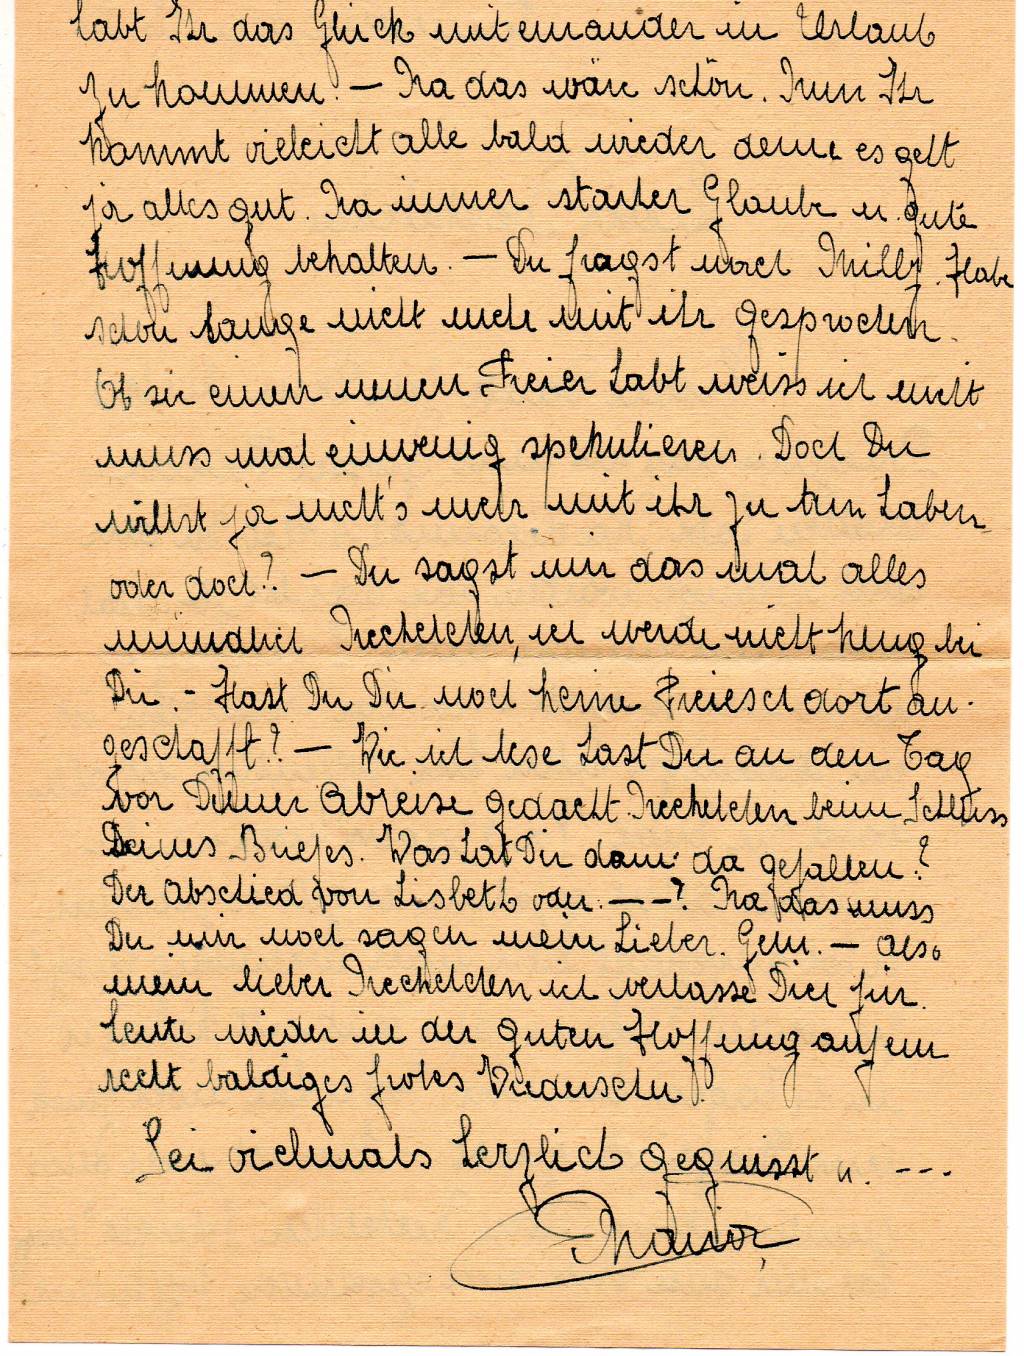 habt Ihr das Glück miteinander in Urlaub
zu kommen. — Na das wäre schön. Nun Ihr
kommt vieleicht alle bald wieder denn es geht
ja alles gut. Na immer starker Glaube u. gute
Hoffnung behalten. — Du fragst nach Milly. Habe
schon lange nicht mehr mit ihr gesprochen.
Ob sie einen neuen Freier habt weiss ich nicht
muss mal einwenig spekulieren. Doch Du
willst ja nicht's mehr mit ihr zu tun haben
oder doch? — Du sagst mir das mal alles
mündlich, ich werde nicht klug bei
Dir. - Hast Du Dir noch keine dort an-
geschafft? — Wie ich lese hast Du an den Tag
vor Deiner Abreise gedacht beim Schluss
Deines Briefes. Was hat Dir dann da gefallen?
Der Abschied von Lisbeth oder. — —? Na das muss
Du mir noch sagen mein Lieber. Gell. — Also
mein lieber ich verlasse Dich für
heute wieder in der guten Hoffnung auf ein
recht baldiges frohes Wiedersehn.
Sei vielmals herzlich gegrüsst u. - - -